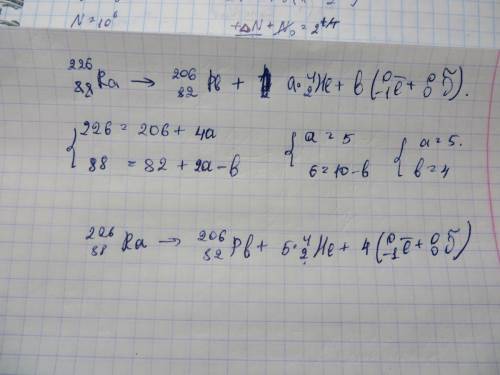 N=10⁶ +ΔN + N₀ = 2
²²⁶₈₈Ra → ²⁰⁶₈₂Pb + a·⁴₂He + b(⁰₋₁e̅ + ⁰₀ν̃).
{226 = 206 + 4a {a = 5 {a = 5.
88 = 82 + 2a - b 6 = 10 - b b = 4
²²⁶₈₈Ra → ²⁰⁶₈₂Pb + 5·⁴₂He + 4(⁰₋₁e̅ + ⁰₀ν̃)